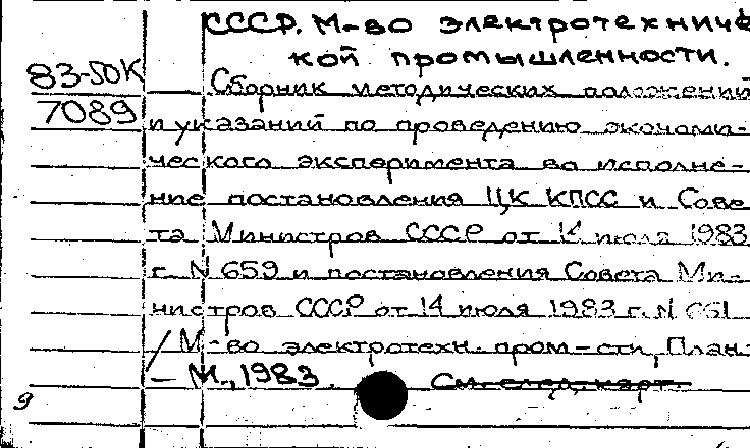 СССР. М-во электротехниче
кой промышленности.
83-50К
Сборник методических положений
7089
и указаний по проведению экономи-
ческого эксперимента во исполне-
ние постановления ЦК КПСС и Сове
та Министров СССР от 14 июля 1983
г. N 659 и постановления Совета Ми-
нистров СССР от 14 июля 1983 г. N 661
/ М-во электротехн. пром-сти, План.
— М., 1983.
См. след. карт.
9